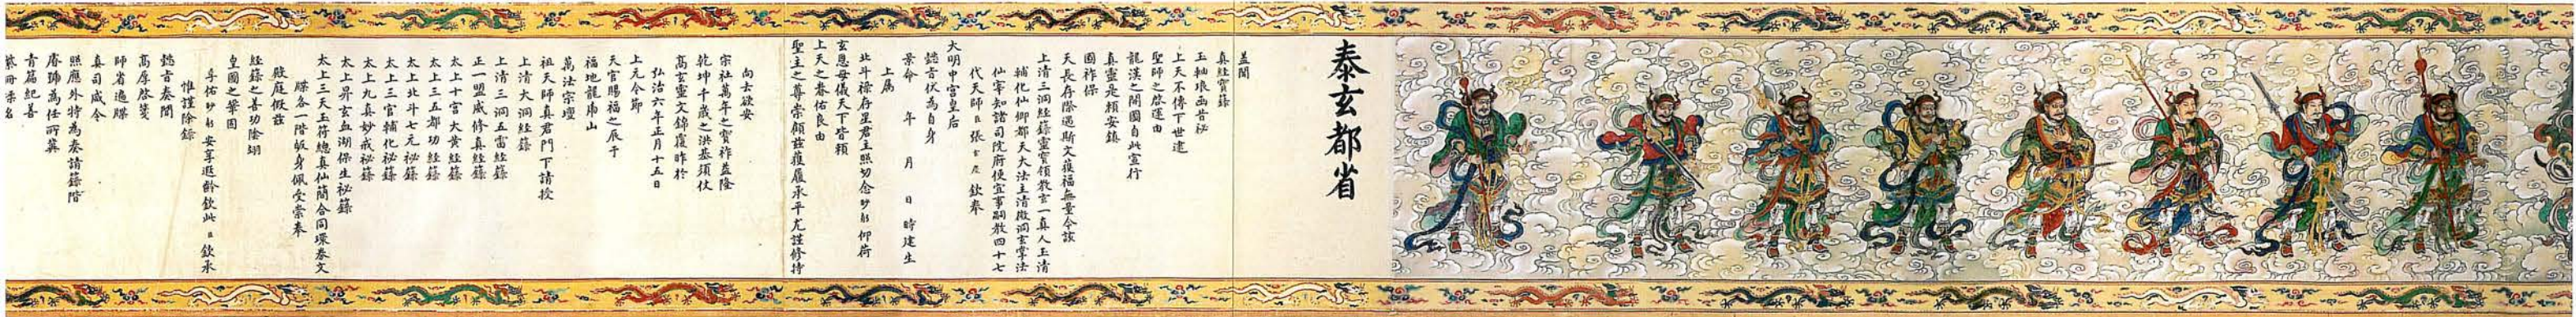 泰玄都省
盖聞
真經寶籙
玉軸琅函昔秘
上天不傳下世逮
聖師之啟運由
龍漢之開圖自此宣行
真靈是賴安鎮
國祚保
天長存除遇斯文獲福無量今該
上清三洞經籙靈寶領教玄一真人玉清
輔化仙卿都天大法主清微洞玄掌法
仙宰知諸司院府便宜事嗣教四十七
代天師臣張玄慶欽奉
大明中宮皇后
懿旨伏為自身
景命 年 月 日 時建生
上屬
北斗祿存星君主照切念眇躬仰荷
玄恩母儀天下皆賴
上天之眷佑良由
聖主之尊崇願茲獲履承平尤謹修持
向去欲安
宗社萬年之寶祚益隆
乾坤千歲之洪基須仗
高玄靈文錦覆昨於
弘治六年正月十五日
上元令節
天官賜福之辰于
福地龍虎山
萬法宗壇
祖天師真君門下請授
上清大洞經籙
上清三洞五雷經籙
正一盟威修真經籙
太上十宮大黄經籙
太上三五都功經籙
太上北斗七元秘籙
太上三官輔化秘籙
太上九真妙戒秘籙
太上昇玄血湖保生秘籙
太上三天玉符總真仙簡合同環券文
牒各一階皈身佩受崇奉
殿庭俶茲
經籙之善功陰翊
皇國之鞏固
享佑眇躬安享遐齡欽此臣欽承
惟謹除錄
懿旨奏聞
高厚啟箋
師省遍牒
真司咸令
照應外特為奏請籙階
睿號為任所冀
青篇紀善
紫冊
名